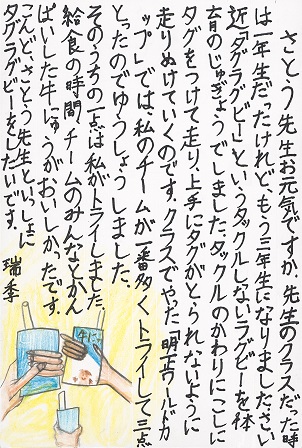 さとう先生お元気ですか。先生のクラスだった時
は一年生だったけれど、もう三年生になりました。さい
近「タグラグビー」というタックルしないラグビーを体
育のじゅぎょうでしました。タックルのかわりにこしに
タグをつけて走り、上手にタグがとられないように
走りぬけていくのです。クラスでやった「明正ワールドカ
ップ」では、私のチームが一番多くトライして三点
とったのでゆうしょうしました。
そのうちの一点は私がトライしました。
給食の時間、チームのみんなとかん
ぱいした牛にゅうがおいしかったです。
こんど、さとう先生といっしょに
タグラグビーをしたいです。
瑞季